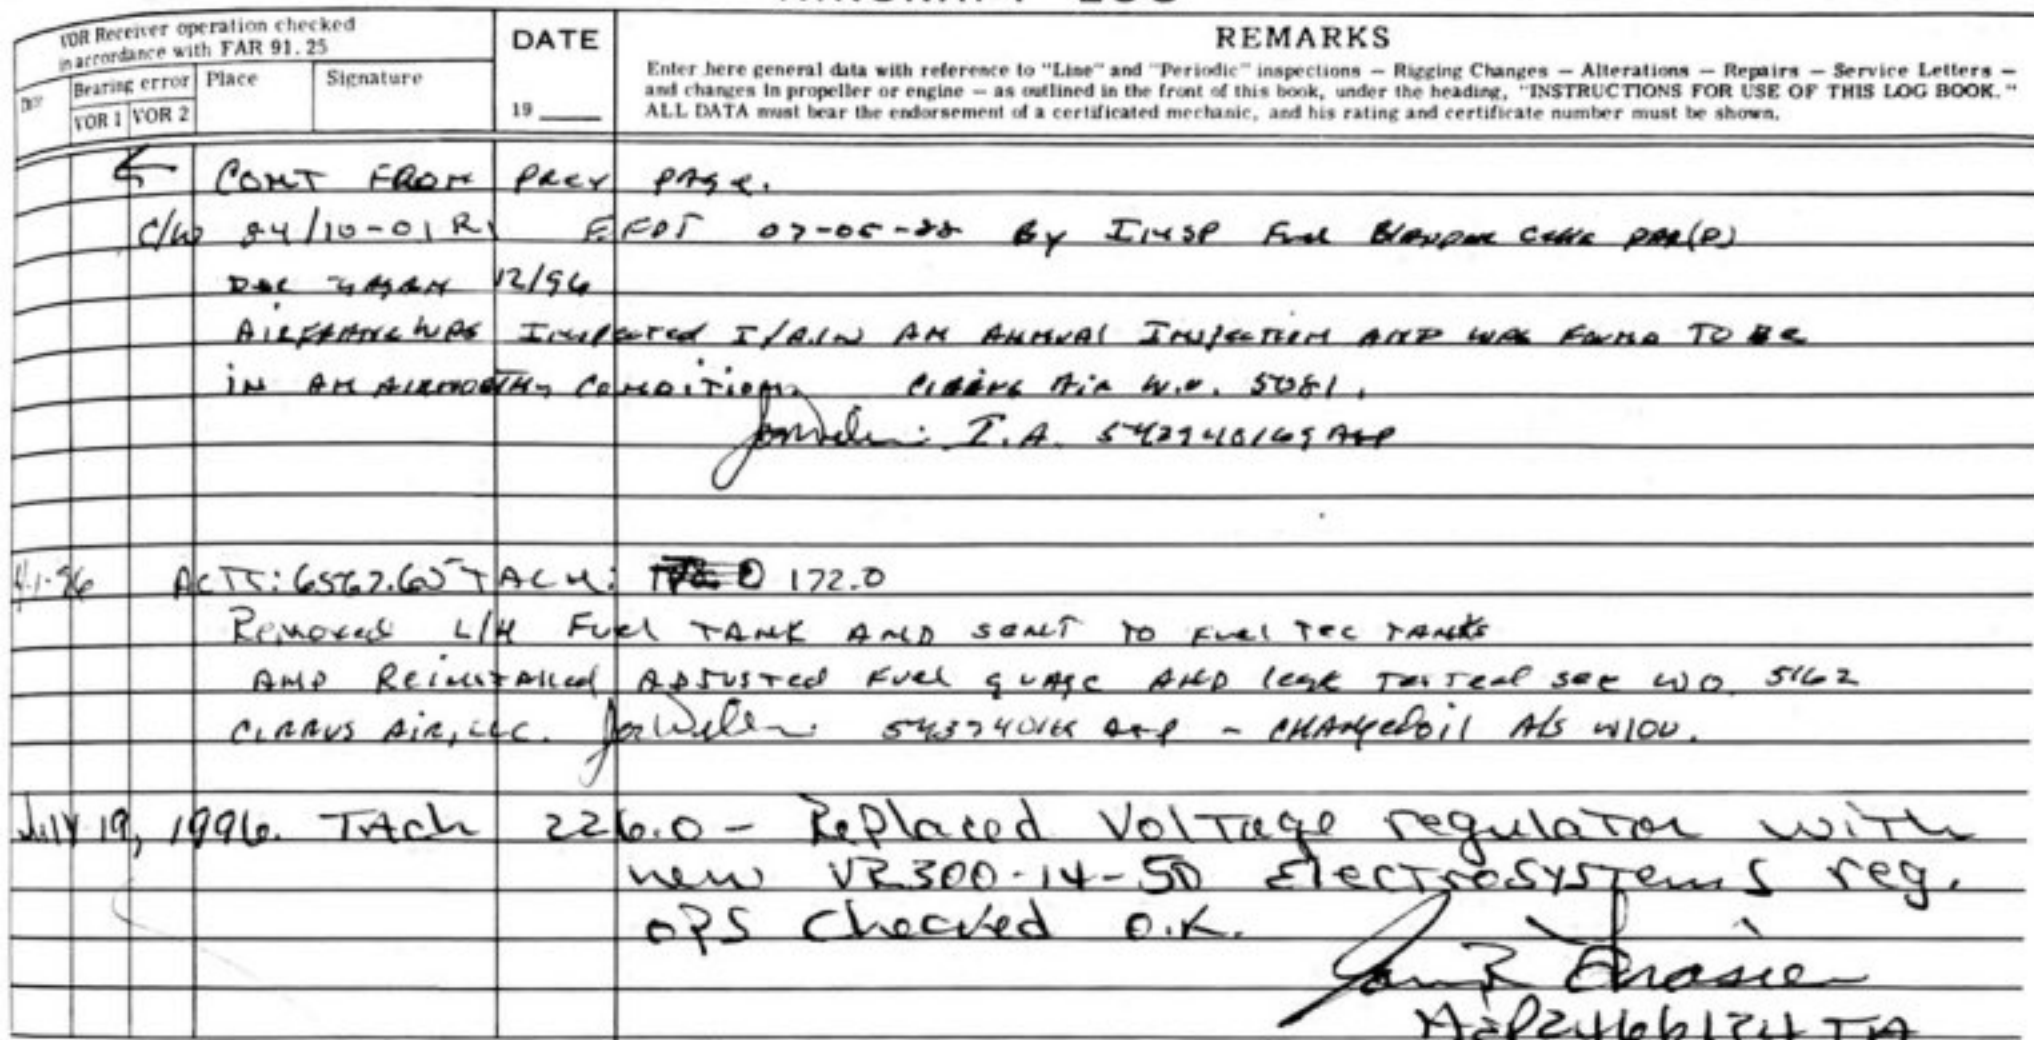 VOR Receiver operation checked
in accordance with FAR 91.25
Bearing error Place Signature
VOR 1 VOR 2
DATE
19
REMARKS
Enter here general data with reference to "Line" and "Periodic" inspections — Rigging Changes — Alterations — Repairs — Service Letters —
and changes in propeller or engine — as outlined in the front of this book, under the heading, "INSTRUCTIONS FOR USE OF THIS LOG BOOK."
ALL DATA must bear the endorsement of a certificated mechanic, and his rating and certificate number must be shown.
CONT FROM PREV PAGE.
C/W 84/10-01 R1 By INSP Fuel
12/96
AIRFRAME WAS Inspected I/A/W AN ANNUAL INSPECTION AND WAS FOUND TO BE
IN AN AIRWORTHY CONDITION. Air W.O. 5081.
I.A. A&P
ACTT: 6567.65 TACH: 172.0
Removed L/H Fuel TANK AND SENT TO FUEL TEC TANKS
AND Reinstalled ADJUSTED FUEL GUAGE AND leak TESTED see WO 5162
CIRRUS AIR, LLC. A&P - CHANGED oil A/S W100.
July 19, 1996. TAch 226.0 - RePlaced VolTage regulaTor wiTh
new VR300-14-50 ElecTrosysTems reg.
OPS Checked O.K.